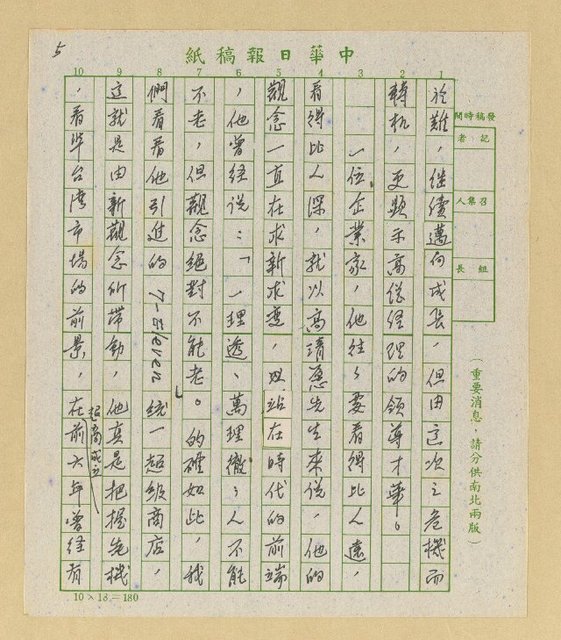 5
中華日報稿紙
於難，继續邁向成長，但由這次之危機而
轉机，更顯示高總經理的領導才華。
一位企業家，他往々要看得比人遠，
看得比人深，就以高清愿先生來說，他的
觀念一直在求新求變，以站在時代的前端
，他曾经说：「一理透、萬理徹；人不能
不老，但觀念絕對不能老。」的確如此，我
們看看他引進的7-Eleven統一超級商店，
這就是由新觀念所帶動，他真是把握先機
，看準台湾市場的前景，在前六年曾经有
超商成立
發稿時間
記者
召集人
組長
（重要消息，請分供南北兩版）
1
2
3
4
5
6
7
8
9
10
10×18=180